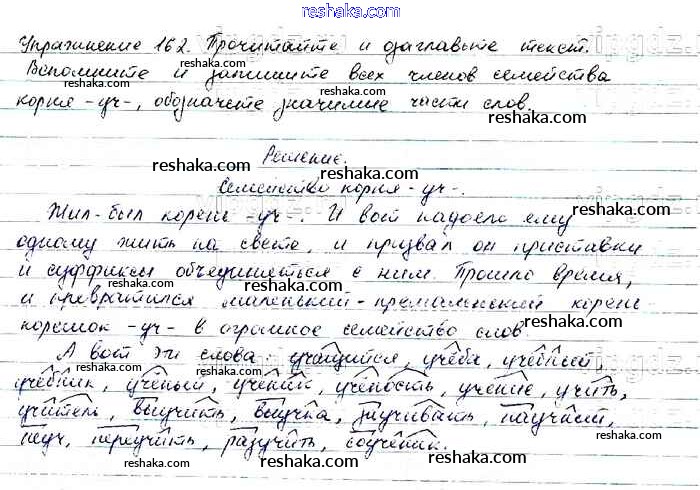 reshaka.com
Упражнение 162. Прочитайте и озаглавьте текст.
Вспомните и запишите всех членов семейства
reshaka.com
reshaka.com
корня -уч-, обозначьте значимые части слов.
reshaka.com
reshaka.com
Решение.
reshaka.com
Семейство корня -уч-.
Жил-был корень -уч-. И вот надоело ему
reshaka.com
одному жить на свете, и призвал он приставки
reshaka.com
и суффиксы объединяться с ним. Прошло время,
reshaka.com
и превратился маленький-премаленький корень-
корешок -уч- в огромное семейство слов.
reshaka.com
reshaka.com
А вот эти слова: учащийся, учёба, учебный,
учебник, учёный, ученик, учёность, учение, учить,
reshaka.com
reshaka.com
учитель, выучить, выучка, заучивать, научный,
неуч, переучить, разучить, соученик.
reshaka.com
reshaka.com
reshaka.com